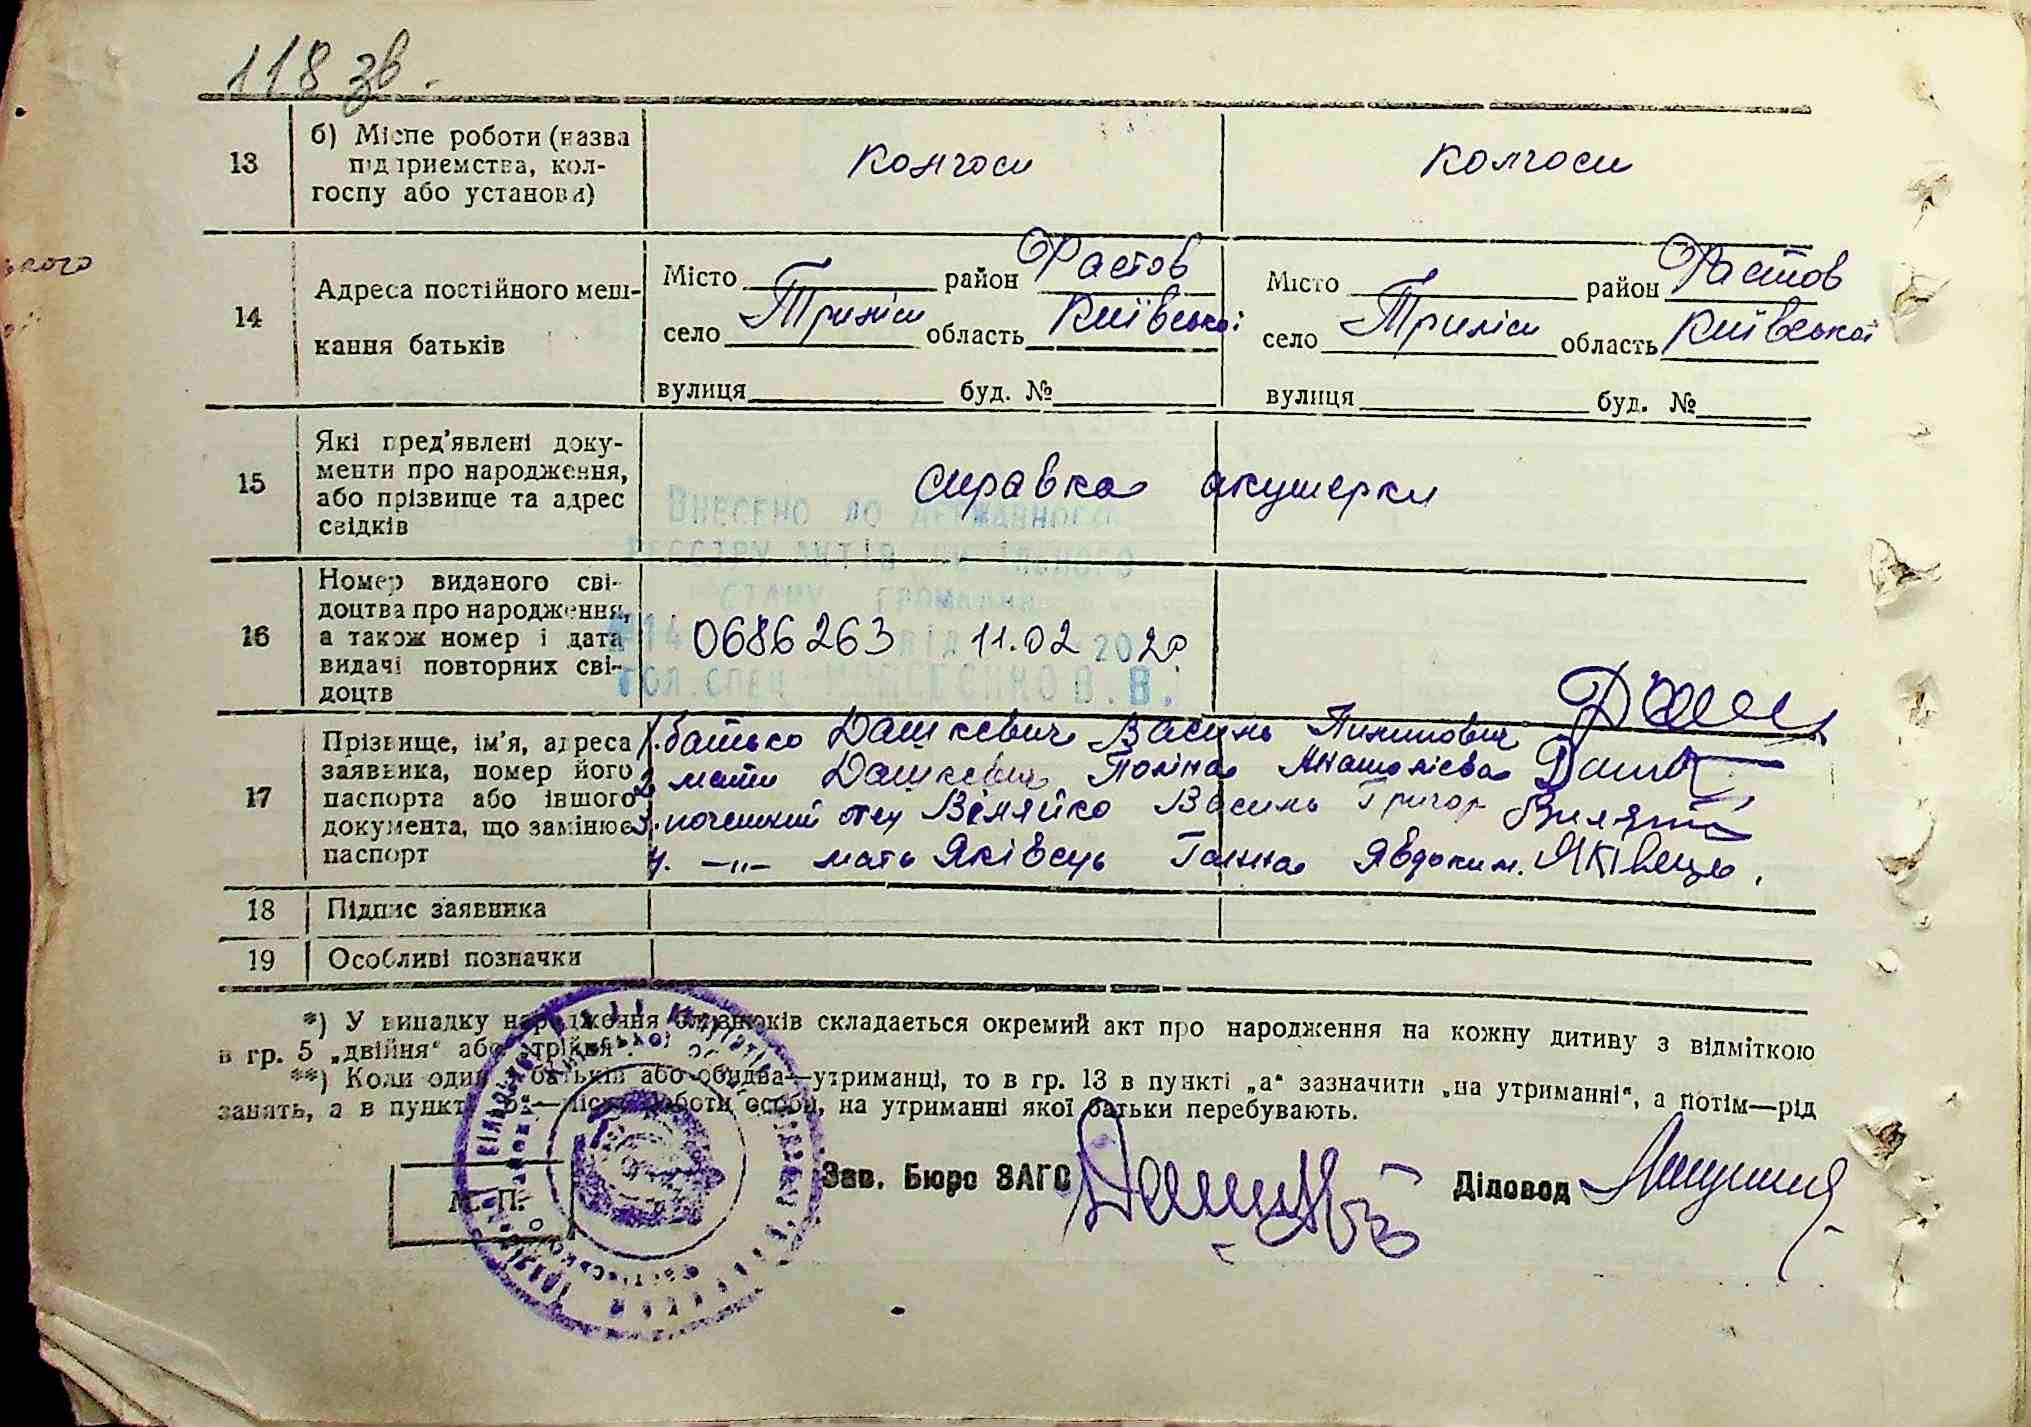 118 зв.
13 б) Місце роботи (назва підприємства, колгоспу або установи) колгосп колгосп
14 Адреса постійного мешкання батьків
Місто район Фастов Місто район Фастов
село Триліси область Київської село Триліси область Київської
вулиця буд. № вулиця буд. №
15 Які пред'явлені документи про народження, або прізвище та адрес свідків справка акушерки
Внесено до Державного
реєстру актів цивільного
стану громадян
16 Номер виданого свідоцтва про народження, а також номер і дата видачі повторних свідоцтв 0686263 11.02
від 202 р.
гол. спец В.В.
17 Прізвище, ім'я, адреса заявника, номер його паспорта або іншого документа, що замінює паспорт
1. батько Дашкевич Василь Пилипович
2. мати Дашкевич Поліна
3. почетний отец Віляйко Василь Григор
4. —„— мать Яківець Ганна Явдоким. Яківець
18 Підпис заявника
19 Особливі позначки
*) У випадку народження близнюків складається окремий акт про народження на кожну дитину з відміткою
в гр. 5 „двійня“ або „трійня“.
**) Коли один з батьків або обидва—утриманці, то в гр. 13 в пункті „а“ зазначити „на утриманні“, а потім—рід
занять, а в пункті „б“—місце роботи особи, на утриманні якої батьки перебувають.
М. П.
Зав. Бюро ЗАГС Діловод